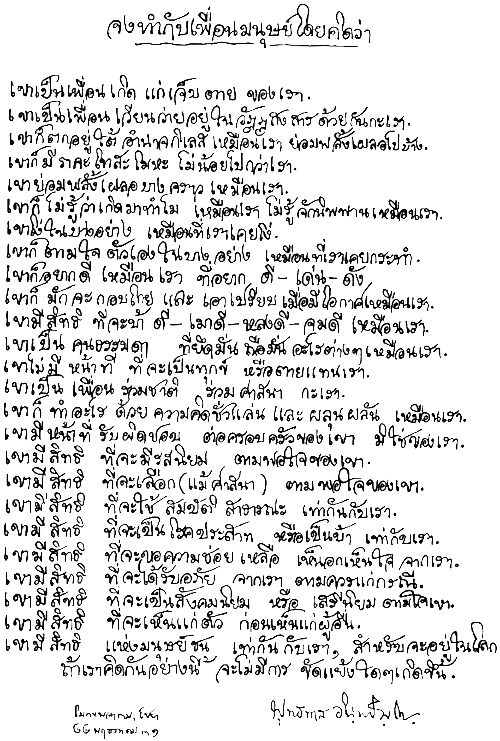 จงทำกับเพื่อนมนุษย์โดยคิดว่า
เขาเป็นเพื่อนเกิด แก่ เจ็บ ตาย ของเรา.
เขาเป็นเพื่อน เวียนว่ายอยู่ใน วัฏฏสงสาร ด้วยกันกะเรา.
เขาก็ตกอยู่ใต้ อำนาจกิเลส เหมือนเรา ย่อมพลั้งเผลอไปบ้าง.
เขาก็มี ราคะ โทสะ โมหะ ไม่น้อยไปกว่าเรา.
เขาย่อมพลั้งเผลอบางคราว เหมือนเรา.
เขาก็ไม่รู้ว่าเกิดมาทำไม เหมือนเรา ไม่รู้จักนิพพานเหมือนเรา.
เขาโง่ในบางอย่าง เหมือนที่เราเคยโง่.
เขาก็ตามใจ ตัวเองในบางอย่าง เหมือนที่เราเคยกระทำ.
เขาก็อยากดี เหมือนเรา ที่อยาก ดี-เด่น-ดัง
เขาก็ มักจะกอบโกย และ เอาเปรียบ เมื่อมีโอกาสเหมือนเรา.
เขามีสิทธิ ที่จะบ้า ดี-เมาดี-หลงดี-จมดี เหมือนเรา.
เขาเป็น คนธรรมดา ที่ยึดมั่น ถือมั่น อะไรต่างๆเหมือนเรา.
เขาไม่มี หน้าที่ ที่จะเป็นทุกข์ หรือตายแทนเรา.
เขาเป็น เพื่อน ร่วมชาติ ร่วมศาสนา กะเรา.
เขาก็ ทำอะไร ด้วย ความคิดชั่วแล่น และ ผลุนผลัน เหมือนเรา.
เขามีหน้าที่ รับผิดชอบ ต่อครอบครัวของเขา มิใช่ของเรา.
เขามีสิทธิ ที่จะมีรสนิยม ตามพอใจของเขา.
เขามี สิทธิ ที่จะเลือก(แม้ศาสนา) ตามพอใจของเขา.
เขามี สิทธิ ที่จะใช้ สมบัติ สาธารณะ เท่ากันกับเรา.
เขามี สิทธิ ที่จะเป็นโรคประสาท หรือเป็นบ้า เท่ากับเรา.
เขามี สิทธิ ที่จะขอความช่วยเหลือ เห็นอกเห็นใจ จากเรา.
เขามี สิทธิ ที่จะได้รับอภัย จากเรา ตามควรแก่กรณี.
เขามี สิทธิ ที่จะเป็นสังคมนิยม หรือ เสรีนิยม ตามใจเขา.
เขามี สิทธิ ที่จะเห็นแก่ตัว ก่อนเห็นแก่ผู้อื่น.
เขามี สิทธิ แห่งมนุษย์ชน เท่ากันกับเรา, สำหรับจะอยู่ในโลก
ถ้าเราคิดกันอย่างนี้ จะไม่มีการ ขัดแย้งใดๆเกิดขึ้น.
โมกขพลาราม, ไชยา พุทธทาส อินฺทปญฺโญ.
๒๒ พฤษภาคม ๓๑